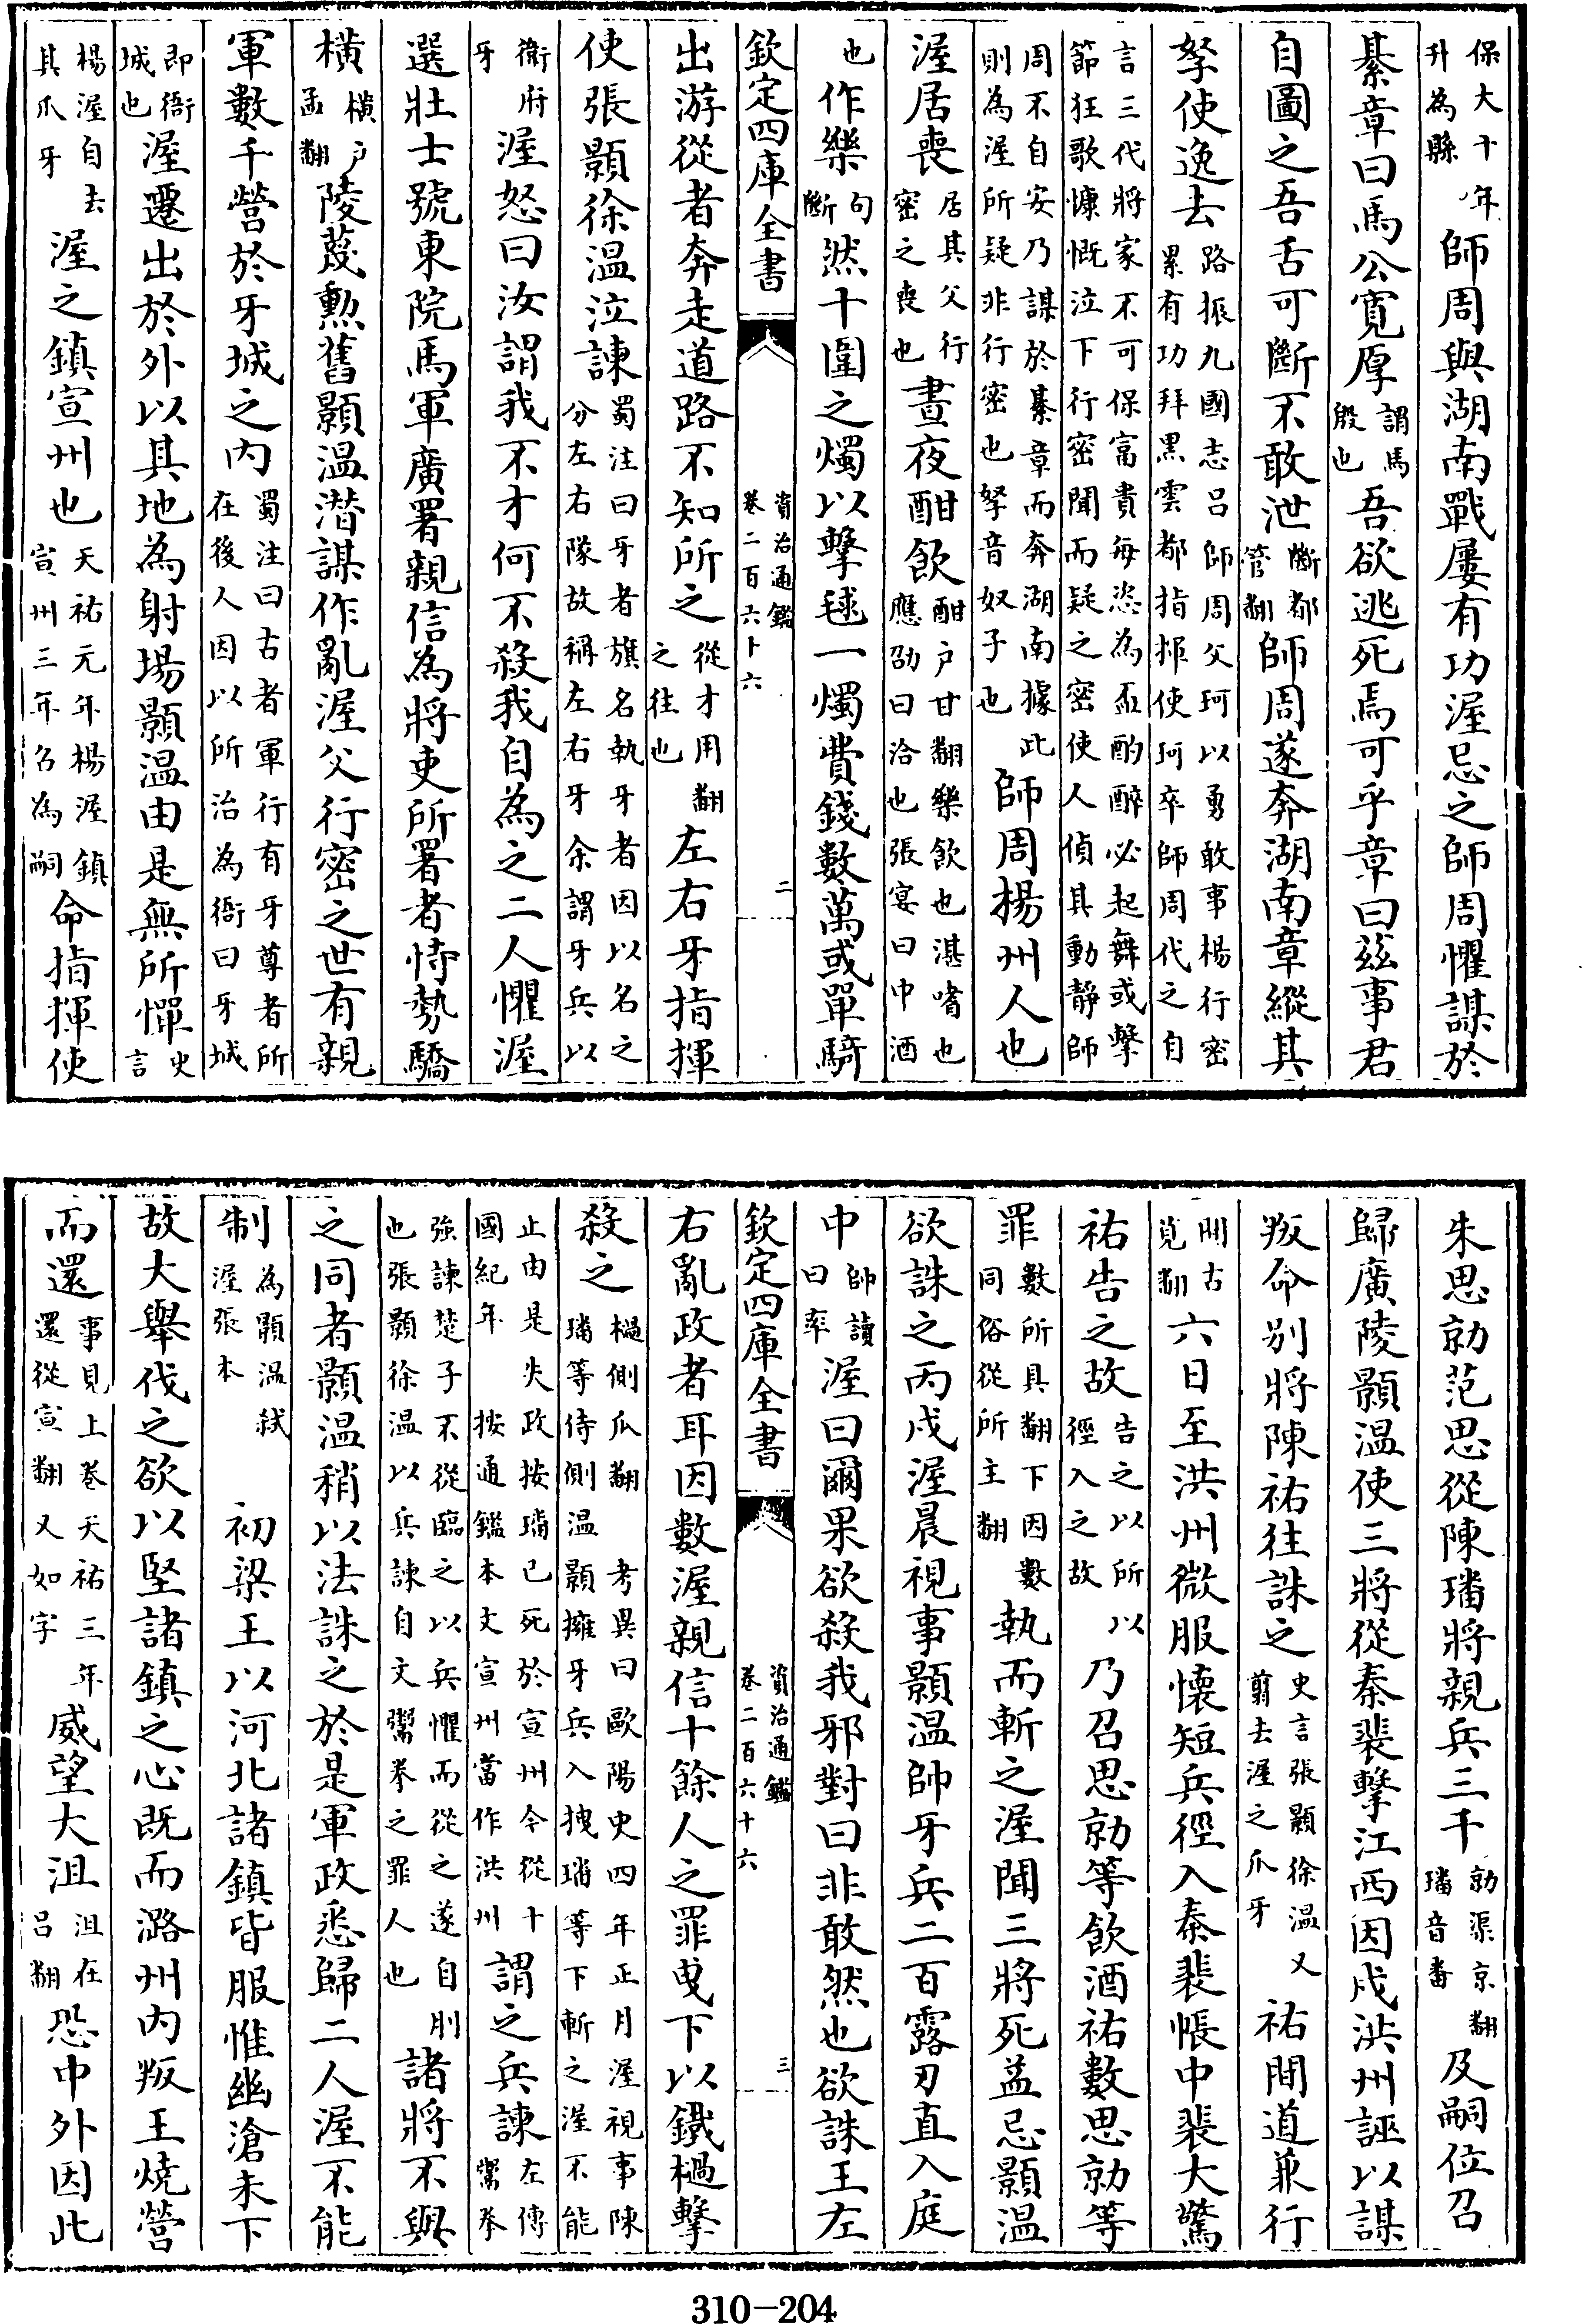 保大十年升為縣師周與湖南戰屢有功渥忌之師周懼謀於
綦章曰馬公寛厚謂馬殷也吾欲逃死焉可乎章曰兹事君
自圖之吾舌可斷不敢泄斷都管翻師周遂奔湖南章縱其
孥使逸去路振九國志吕師周父珂以勇敢事楊行密累有功拜黒雲都指揮使珂卒師周代之自
言三代將家不可保富貴每恣為盃酌醉必起舞或擊節狂歌慷慨泣下行密聞而疑之密使人偵其動静師
周不自安乃謀於綦章而奔湖南據此則為渥所疑非行密也孥音奴子也師周揚州人也
渥居喪居其父行密之喪也晝夜酣飲酣户甘翻樂飲也湛嗜也應劭曰洽也張宴曰中酒
也作樂句斷然十圍之燭以擊毬一燭費錢數萬或單騎
欽定四庫全書 資治通鑑卷二百六十六 二
出游從者奔走道路不知所之從才用翻之往也左右牙指揮
使張顥徐温泣諫蜀注曰牙者旗名執牙者因以名之分左右隊故稱左右牙余謂牙兵以
衛府牙渥怒曰汝謂我不才何不殺我自為之二人懼渥
選壯士號東院馬軍廣署親信為將吏所署者恃勢驕
橫橫户孟翻陵蔑勲舊顥温潜謀作亂渥父行密之世有親
軍數千營於牙城之内蜀注曰古者軍行有牙尊者所在後人因以所治為衙曰牙城
即衙城也渥遷出於外以其地為射場顥温由是無所憚史言
楊渥自去其爪牙渥之鎮宣州也天祐元年楊渥鎮宣州三年召為嗣命指揮使
朱思勍范思從陳璠將親兵三千勍渠京翻璠音番及嗣位召
歸廣陵顥温使三將從秦裴擊江西因戍洪州誣以謀
叛命别將陳祐往誅之史言張顥徐温又翦去渥之爪牙祐間道兼行
間古莧翻六日至洪州微服懷短兵徑入秦裴帳中裴大驚
祐告之故告之以所以徑入之故乃召思勍等飲酒祐數思勍等
罪數所具翻下因數同俗從所主翻執而斬之渥聞三將死益忌顥温
欲誅之丙戍渥晨視事顥温帥牙兵二百露刃直入庭
中帥讀曰率渥曰爾果欲殺我邪對曰非敢然也欲誅王左
欽定四庫全書 資治通鑑卷二百六十六 三
右亂政者耳因數渥親信十餘人之罪曳下以鐵檛擊
殺之檛側瓜翻考異曰歐陽史四年正月渥視事陳璠等侍側温顥擁牙兵入拽璠等下斬之渥不能
止由是失政按璠已死於宣州今從十國紀年按通鑑本文宣州當作洪州謂之兵諫左傳鬻拳
強諫楚子不從臨之以兵懼而從之遂自刖也張顥徐温以兵諫自文鬻拳之罪人也諸將不與
之同者顥温稍以法誅之於是軍政悉歸二人渥不能
制為顥温弑渥張本初梁王以河北諸鎮皆服惟幽滄未下
故大舉伐之欲以堅諸鎮之心既而潞州内叛王燒營
而還事見上卷天祐三年還從宣翻又如字威望大沮沮在吕翻恐中外因此
310-204